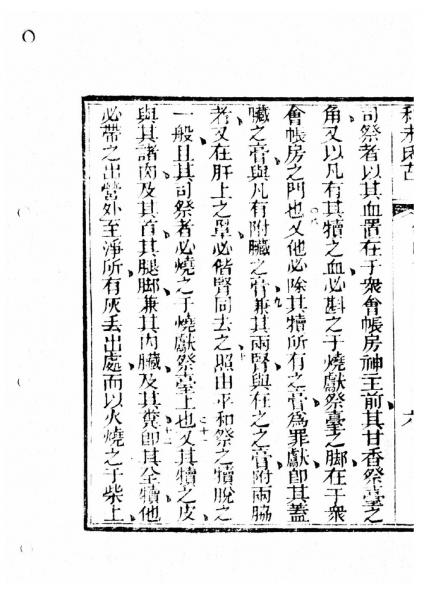 司祭者以其血置在于衆會帳房神王前其甘香祭臺之
角又以凡有其犢之血必斟之于燒獻祭臺之脚在于衆
會帳房之門也又他必除其犢所有之膏爲罪獻即其蓋
臟之膏與凡有附臟之膏兼其兩腎與在之之膏附兩脇
者又在肝上之罩必偕腎同去之照由平和祭之犢脫之
一般且其司祭者必燒之于燒獻祭臺上也又其犢之皮
與其諸肉及其首其腿脚兼其内臟及其糞即其全犢他
必帶之出營外至淨所有灰丟出處而以火燒之于柴上